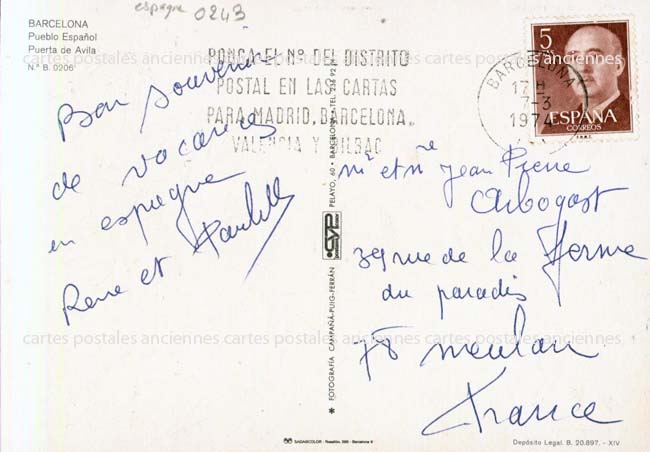 espagne 0243
BARCELONA
Pueblo Español
Puerta de Avila
N.º B. 0206
PONGA EL Nº DEL DISTRITO
POSTAL EN LAS CARTAS
PARA MADRID, BARCELONA,
VALENCIA Y BILBAO
BARCELONA
17H
7-3
1974
5
PTAS
ESPAÑA
CORREOS
F.N.M.T.
Bon souvenir
de vacances
en espagne
Rene et Paulette
mr et me Jean Pierre
Arbogast
39 rue de la Ferme
du paradis
78 meulan
France
* FOTOGRAFÍA CAMPAÑÁ-PUIG-FERRÁN
CYP
PELAYO, 60 • BARCELONA • TEL.
cartes postales anciennes cartes postales anciennes cartes postales anciennes
cartes postales anciennes cartes postales anciennes cartes postales anciennes
SADAGCOLOR - Rosellón, 298 - Barcelona-9
Depósito Legal. B. 20.897. - XIV